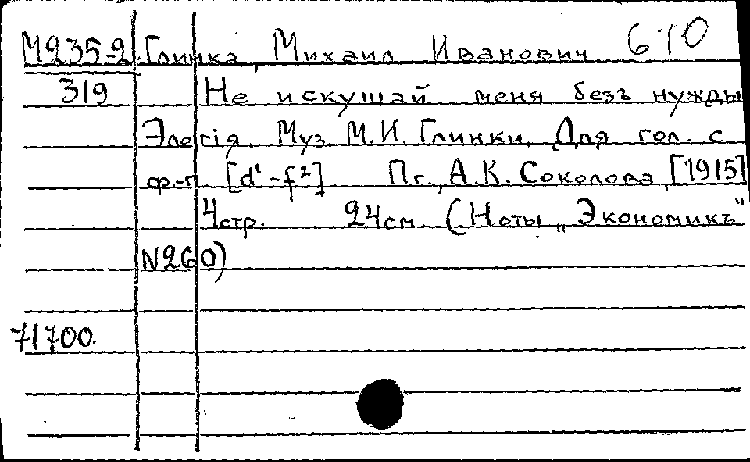 М235-2 Глинка, Михаил Иванович 610
319 Не искушай меня безъ нужды
Элегія. Муз. М.И. Глинки. Для гол. с
ф.-п. [d¹-f²] Пг., А.К. Соколова, [1915]
4 стр. 24 см. (Ноты "Экономикъ"
N260)
71700.